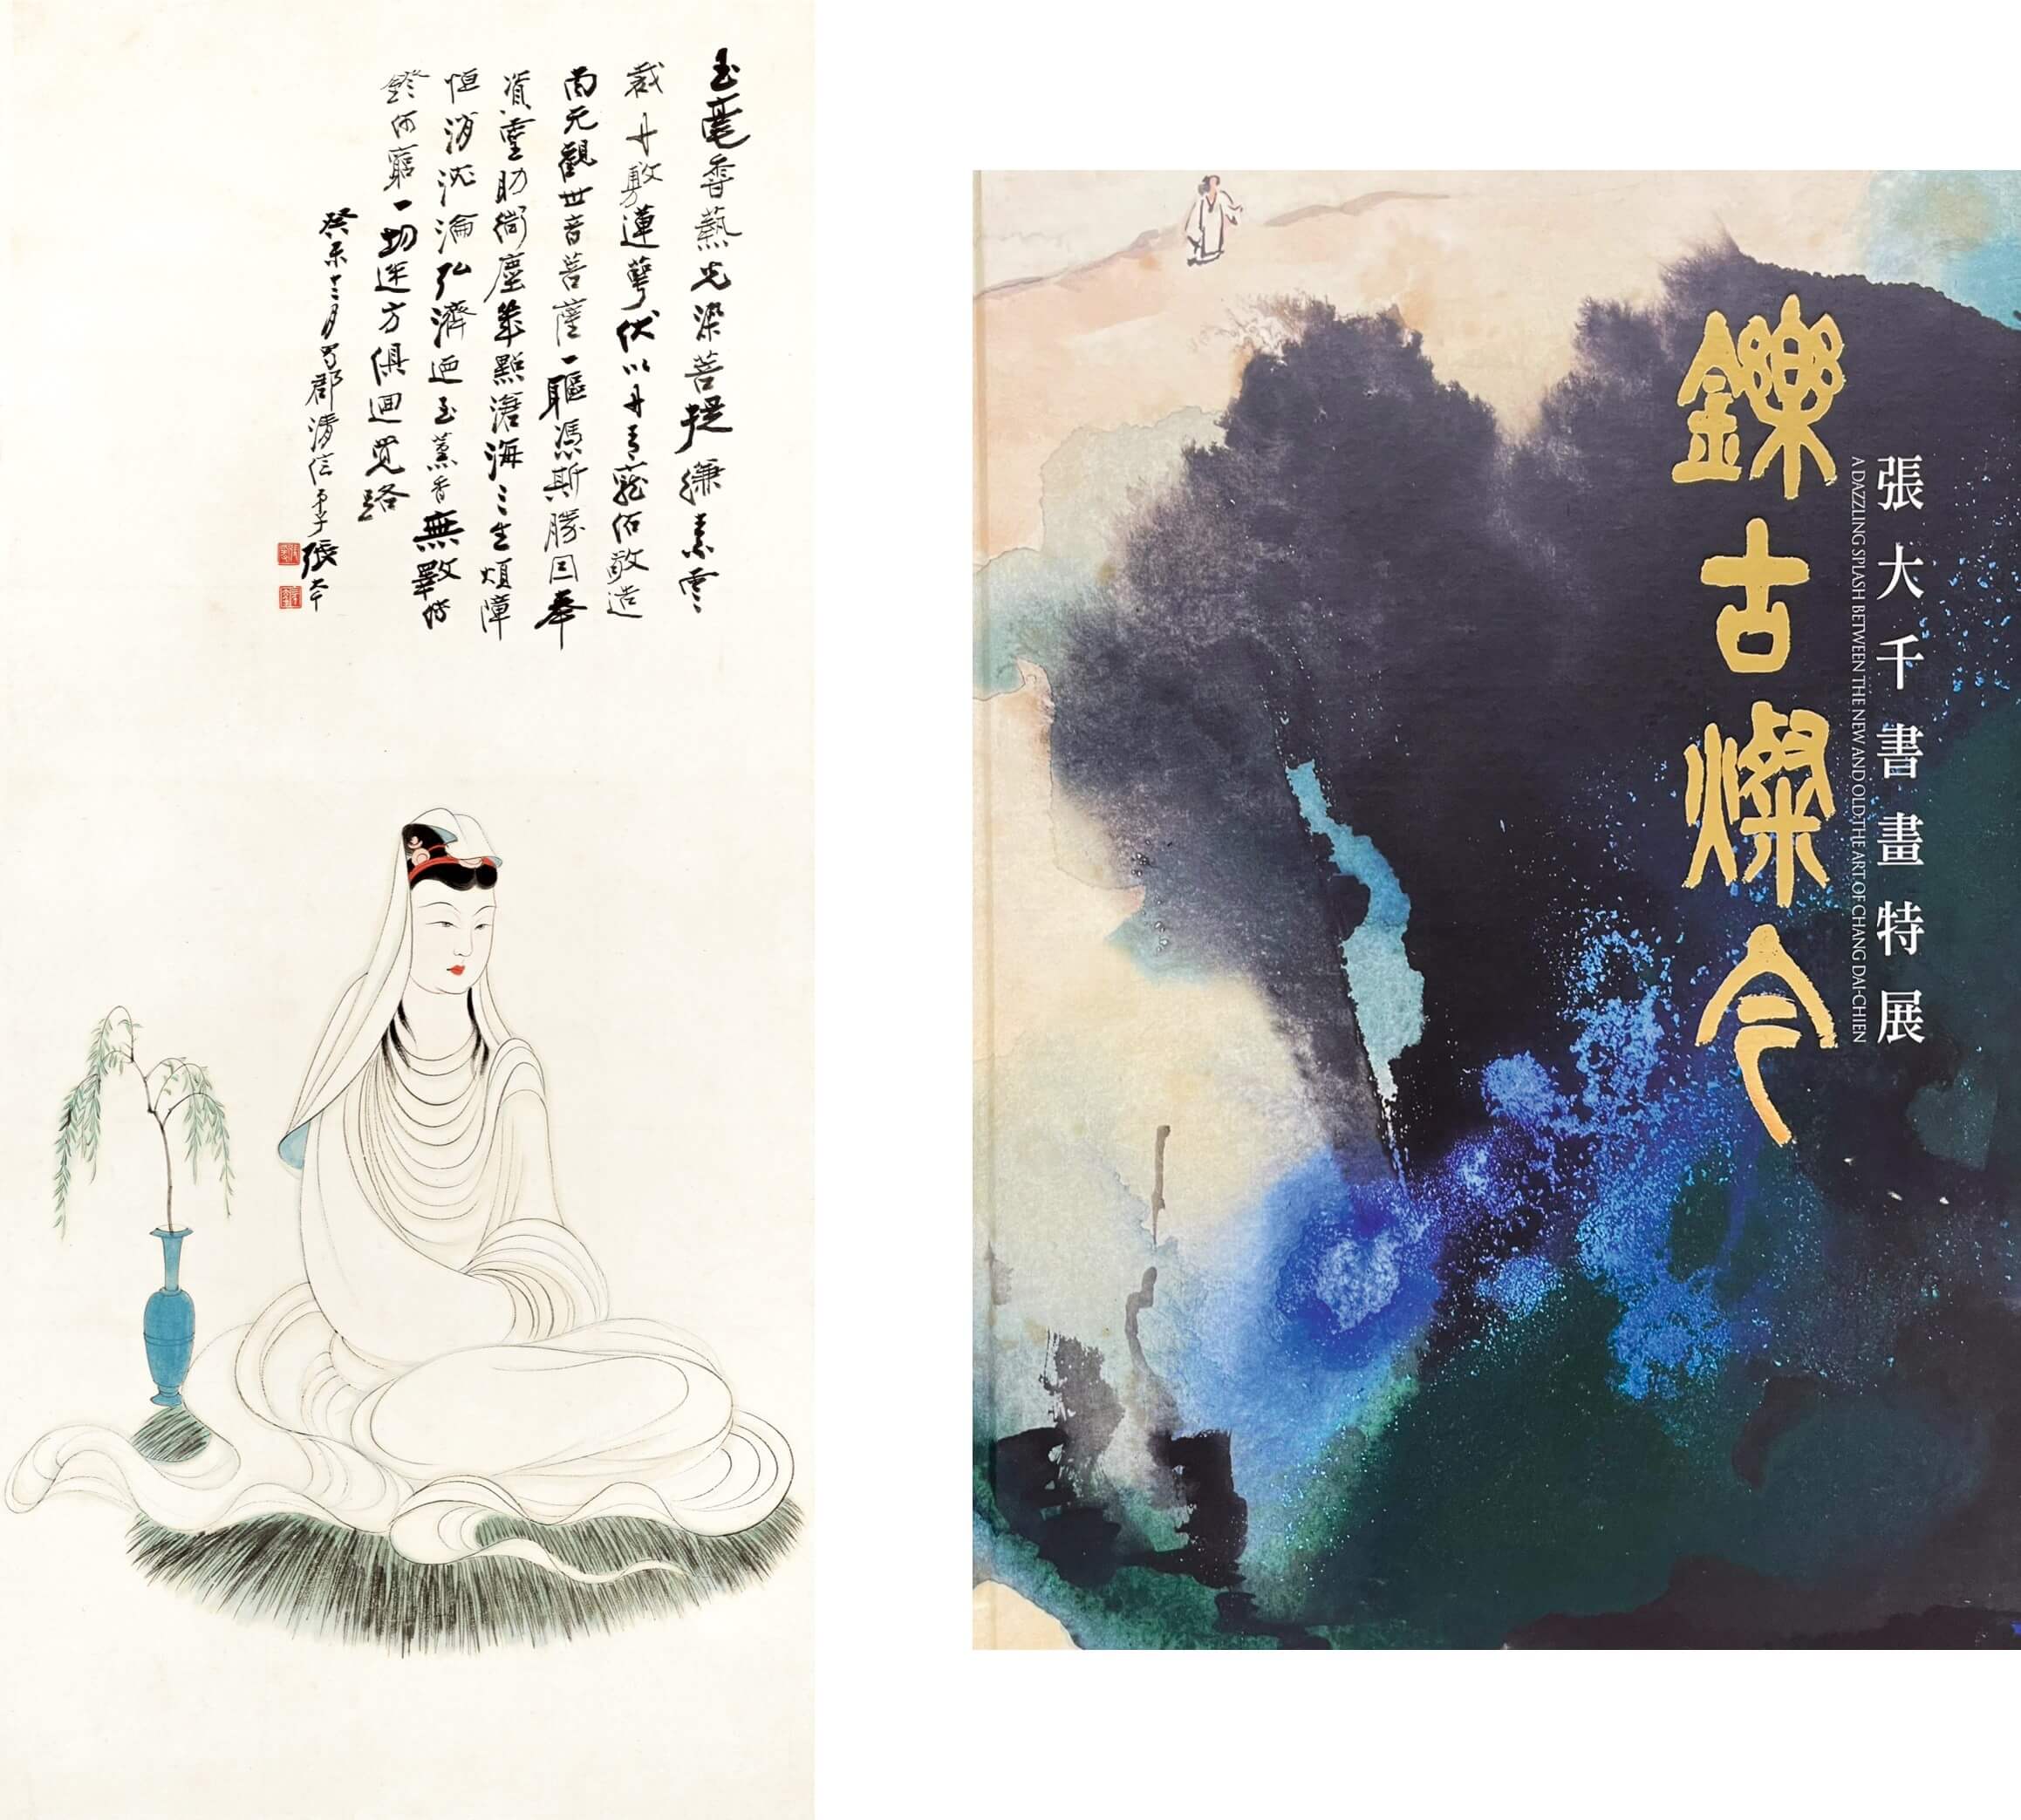 玉毫香爇光染菩提縑素雲
裁丹敷蓮萼伏以丹青敬造
南无觀世音菩薩一軀馮斯勝因奉
資靈助塵筆點滄海三生煩障
恒消沈淪弘濟迴玉薰香無斁
鐙何窮一切迷方俱迴覺路
癸未十二月蜀郡清信弟子張大千
張大千書畫特展
A DAZZLING SPLASH BETWEEN THE NEW AND OLD: THE ART OF CHANG DAI-CHIEN
鑠古燦今